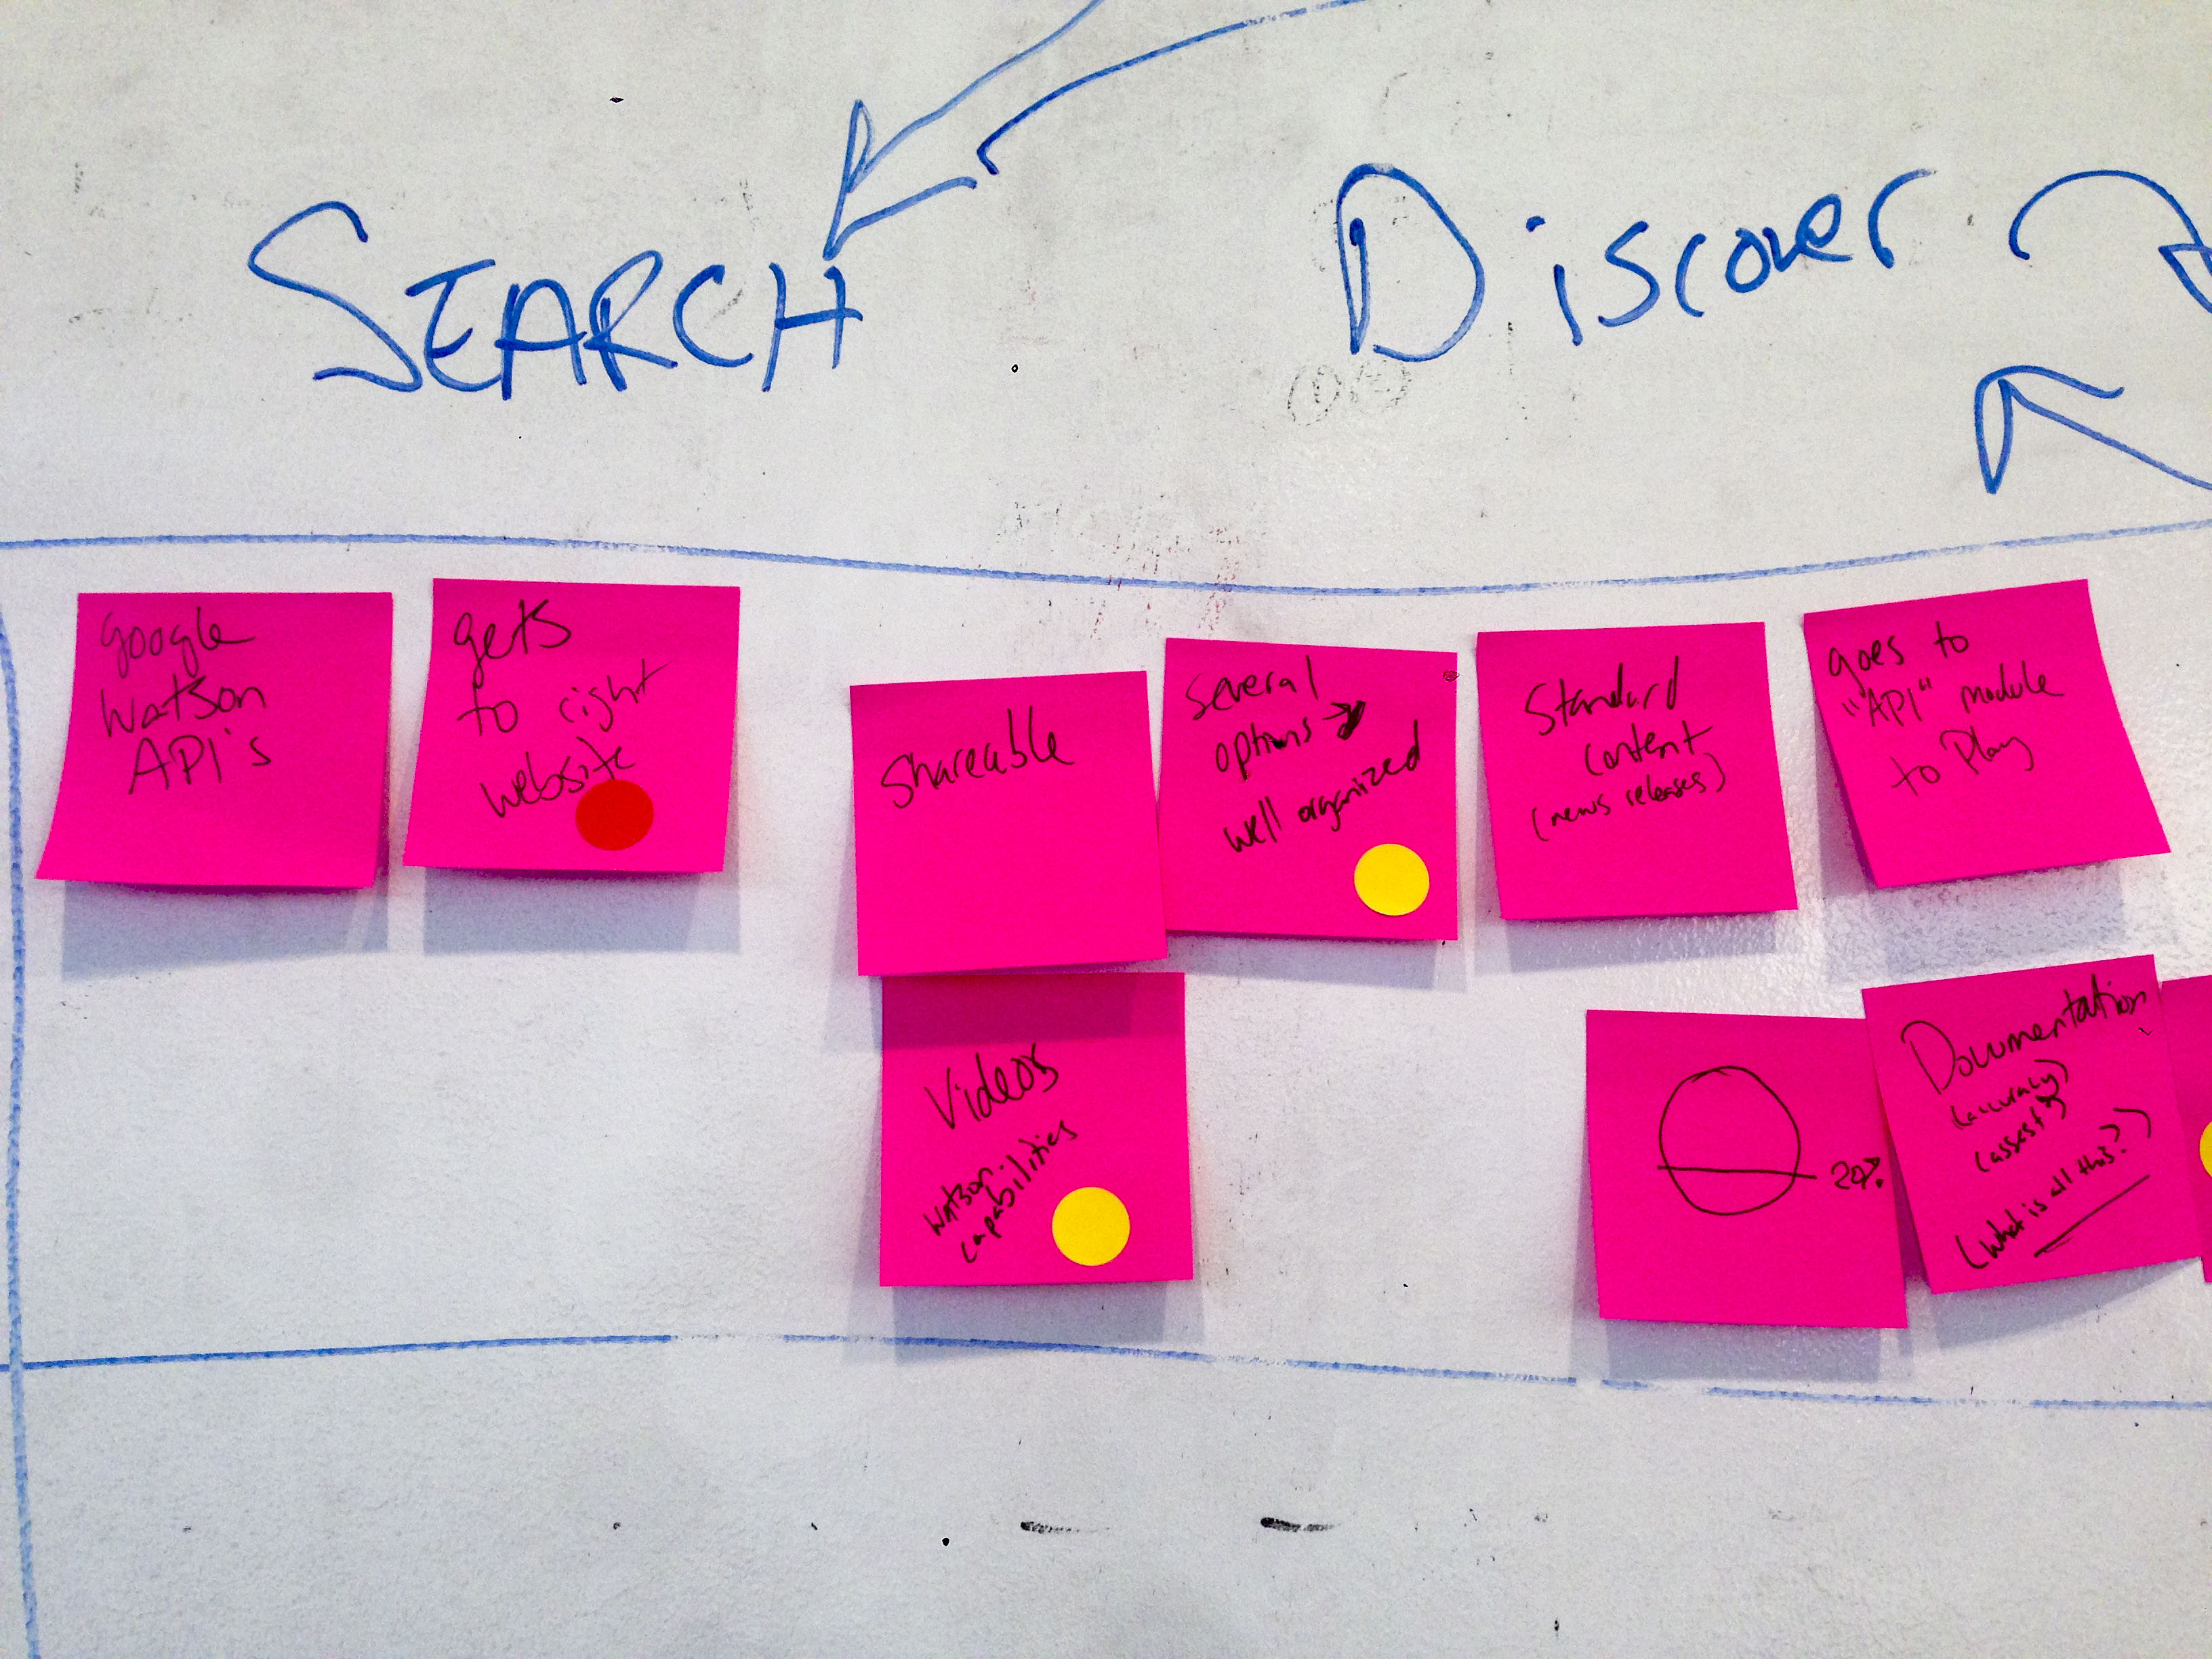 SEARCH
Discover
google
Watson
API's
gets
to right
website
Shareable
several
options →
well organized
Standard
content
(news releases)
goes to
"API" module
to Play
Videos
Watson
capabilities
Documentation
(accuracy)
(What is all this?)